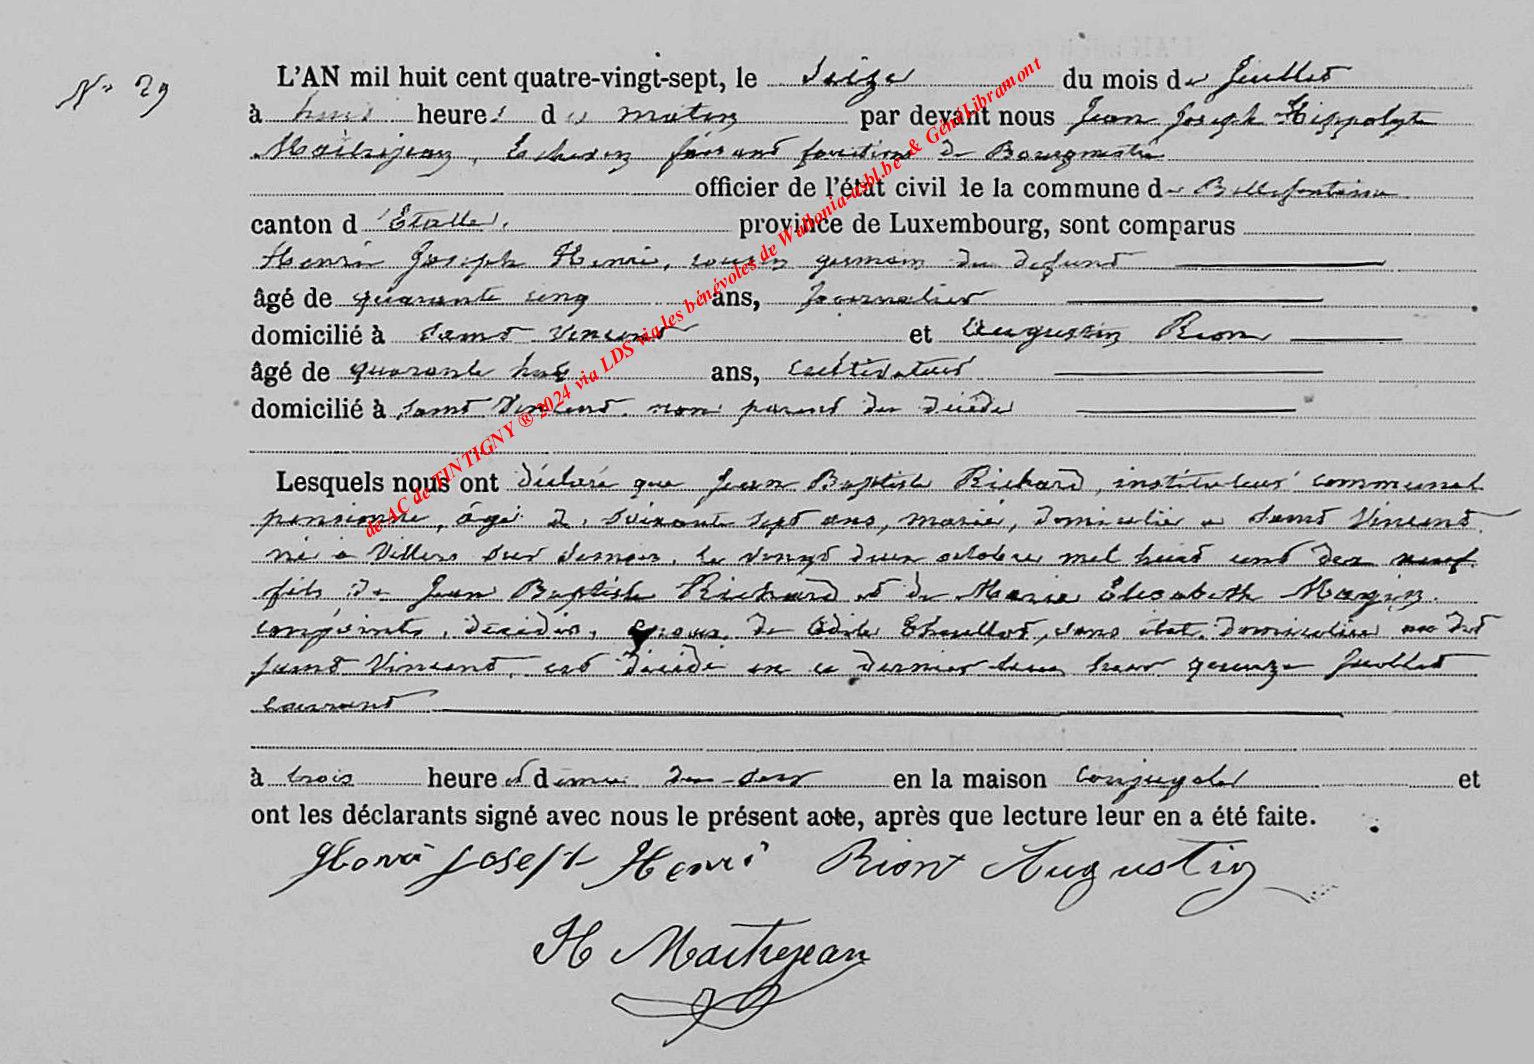 N° 29
L'AN mil huit cent quatre-vingt-sept, le seize du mois de Juillet
à huit heures du matin par devant nous Jean Joseph Hippolyte
Maitrejean, Echevin faisant fonctions de Bourgmestre
officier de l'état civil de la commune de Bellefontaine
canton d'Etalle, province de Luxembourg, sont comparus
Henri Joseph Henri, cousin germain du defunt
âgé de quarante cinq ans, journalier
domicilié à Saint Vincent et Augustin Rion
âgé de quarante huit ans, Cultivateur
domicilié à Saint Vincent non parent du décédé
Lesquels nous ont déclaré que Jean Baptiste Richard, instituteur communal
pensionné, âgé de soixante sept ans, marié, domicilié à Saint Vincent
né à Villers sur Semois, le vingt deux octobre mil huit cent dix neuf
fils de Jean Baptiste Richard et de Marie Elisabeth Magin
conjoints, décédés, époux de Odile Thuillot, sans état, domiciliée au dit
Saint Vincent, est décédé en ce dernier lieu hier quinze Juillet
courant
à trois heures et demie du soir en la maison conjugale et
ont les déclarants signé avec nous le présent acte, après que lecture leur en a été faite.
Henri Joseph Henri Riont Augustin
H Maitrejean
de AC de TINTIGNY ® 2024 via LDS via les bénévoles de Wallonia-asbl.be & GénéLibramont